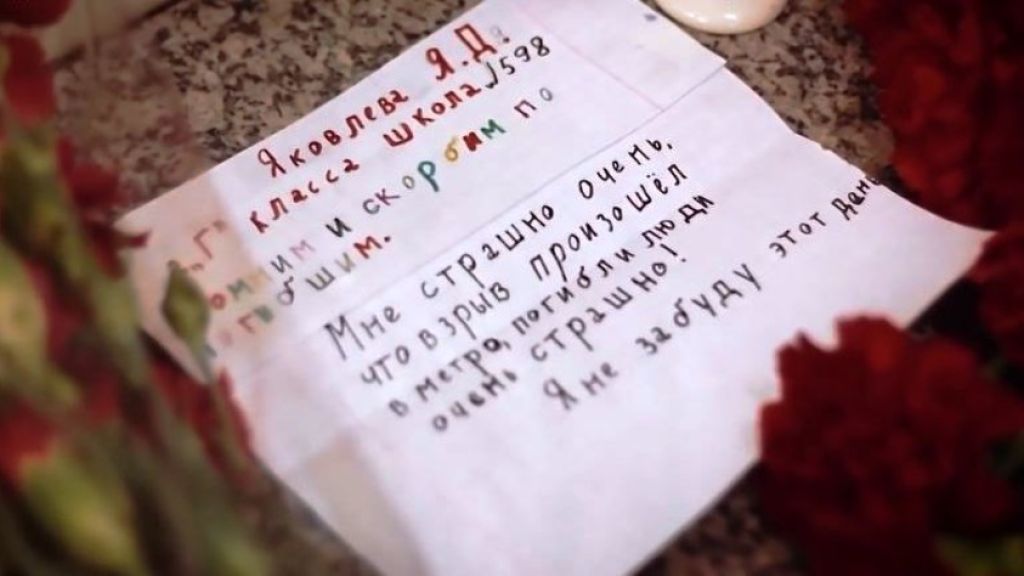 Яковлева Я.Д.
класса школа √598
"Г"
омним и скорбим по
погибшим.
Мне страшно очень,
что взрыв произошёл
в метро, погибли люди
очень страшно!
Я не забуду этот день